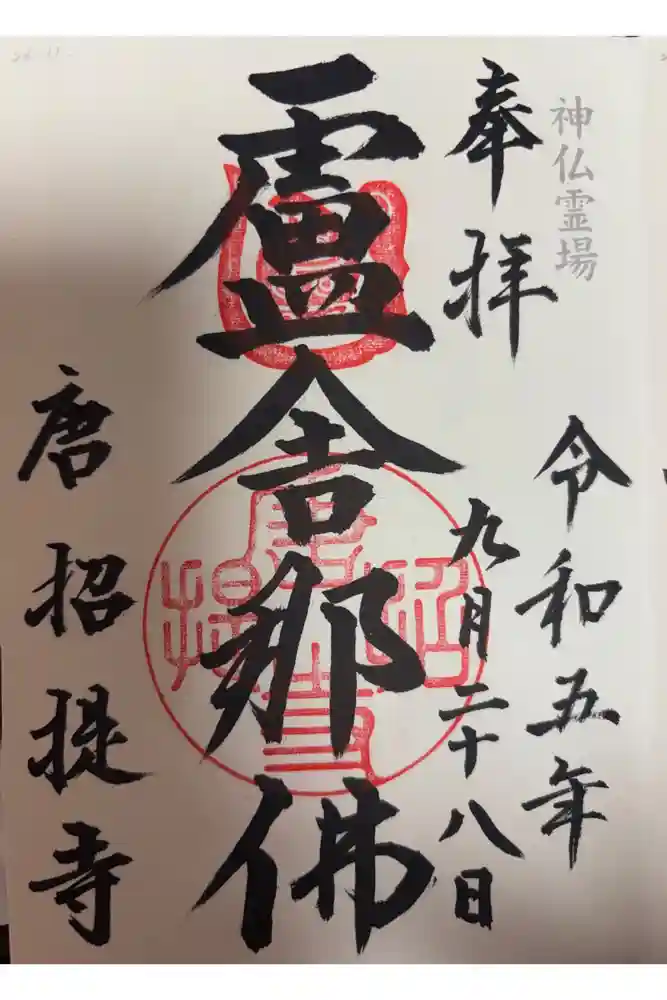 神仏霊場
奉拝
令和五年
九月二十八日
盧舎那佛
唐招提寺
唐招提寺